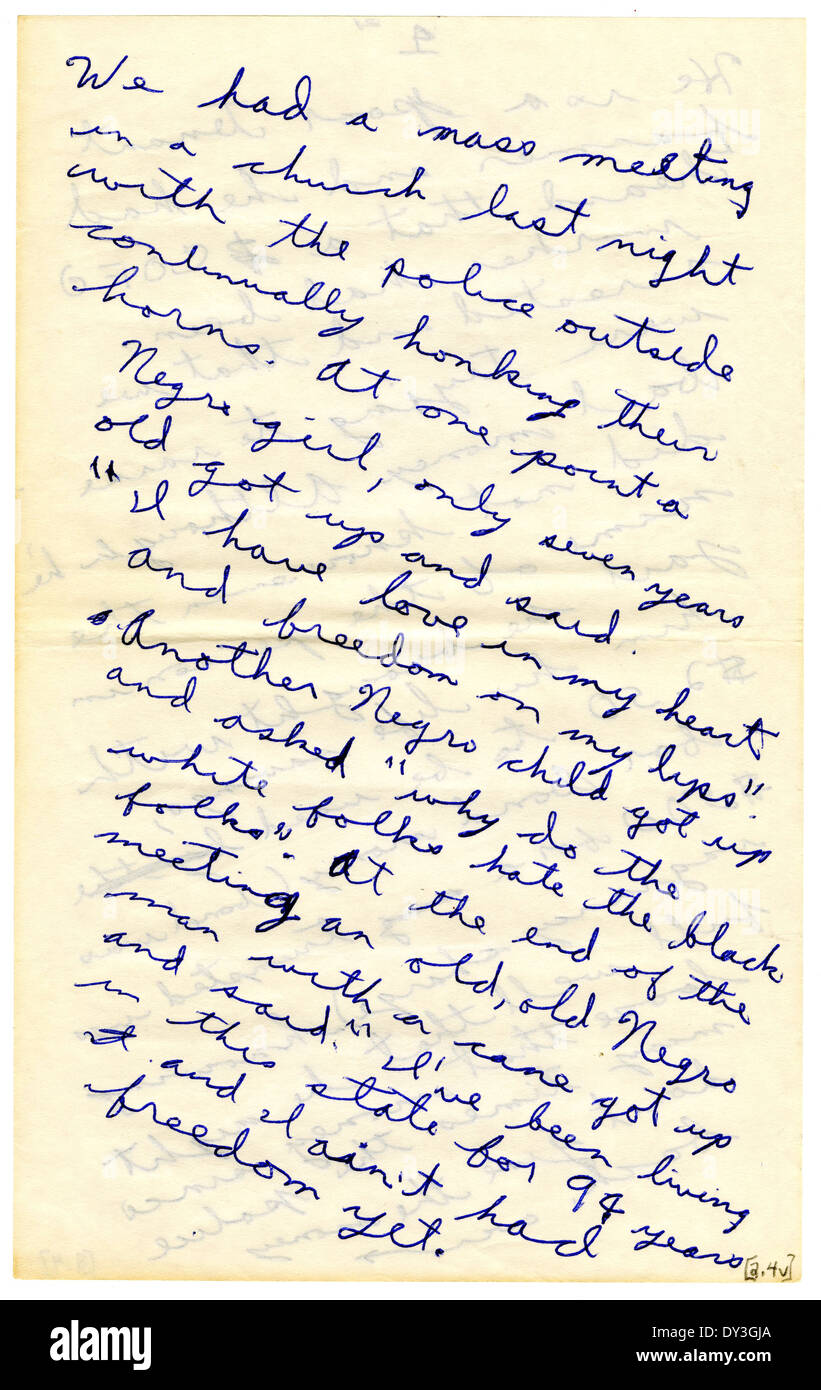 We had a mass meeting
in a church last night
with the police outside
continually honking their
horns. At one point a
Negro girl, only seven years
old got up and said:
"I have love in my heart
and freedom on my lips".
Another Negro child got up
and asked "why do the
white folks hate the black
folks". At the end of the
meeting an old, old Negro
man with a cane got up
and said: "I've been living
in this state for 94 years
and I ain't had
freedom yet.
[a.4v]
alamy
Image ID: DY3GJA
www.alamy.com